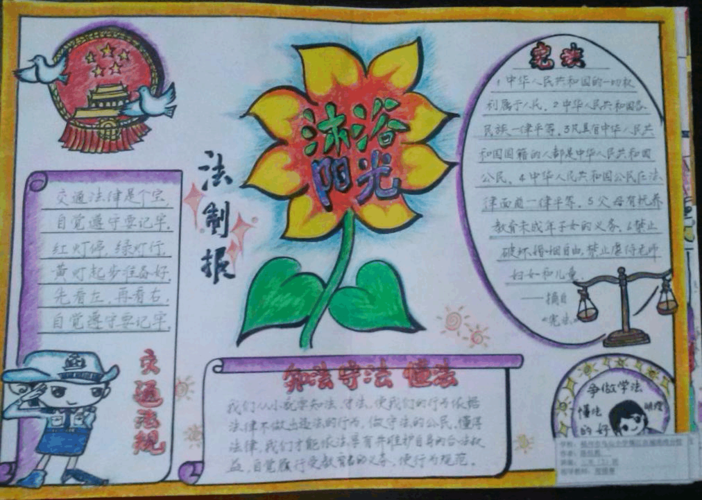 沐浴
阳光
法制报
宪法
1.中华人民共和国的一切权
利属于人民。2.中华人民共和国各
民族一律平等。3.凡具有中华人民共
和国国籍的人都是中华人民共和国
公民。4.中华人民共和国公民在法
律面前一律平等。5.父母有抚养
教育未成年子女的义务。6.禁止
破坏婚姻自由,禁止虐待老人
妇女和儿童。
——摘自
"宪法"
交通法律是个宝,
自觉遵守要记牢,
红灯停,绿灯行,
黄灯起步准备好,
先看左,再看右,
自觉遵守要记牢,
交通法规
知法 守法 懂法
我们从小就要知法,守法,使我们的行为依据
法律不做违法的行为,做守法的公民,懂得
法律,我们才能依法享有并维护自身的合法权
益,自觉履行受教育者的义务,使行为规范。
争做学法
懂法
的好